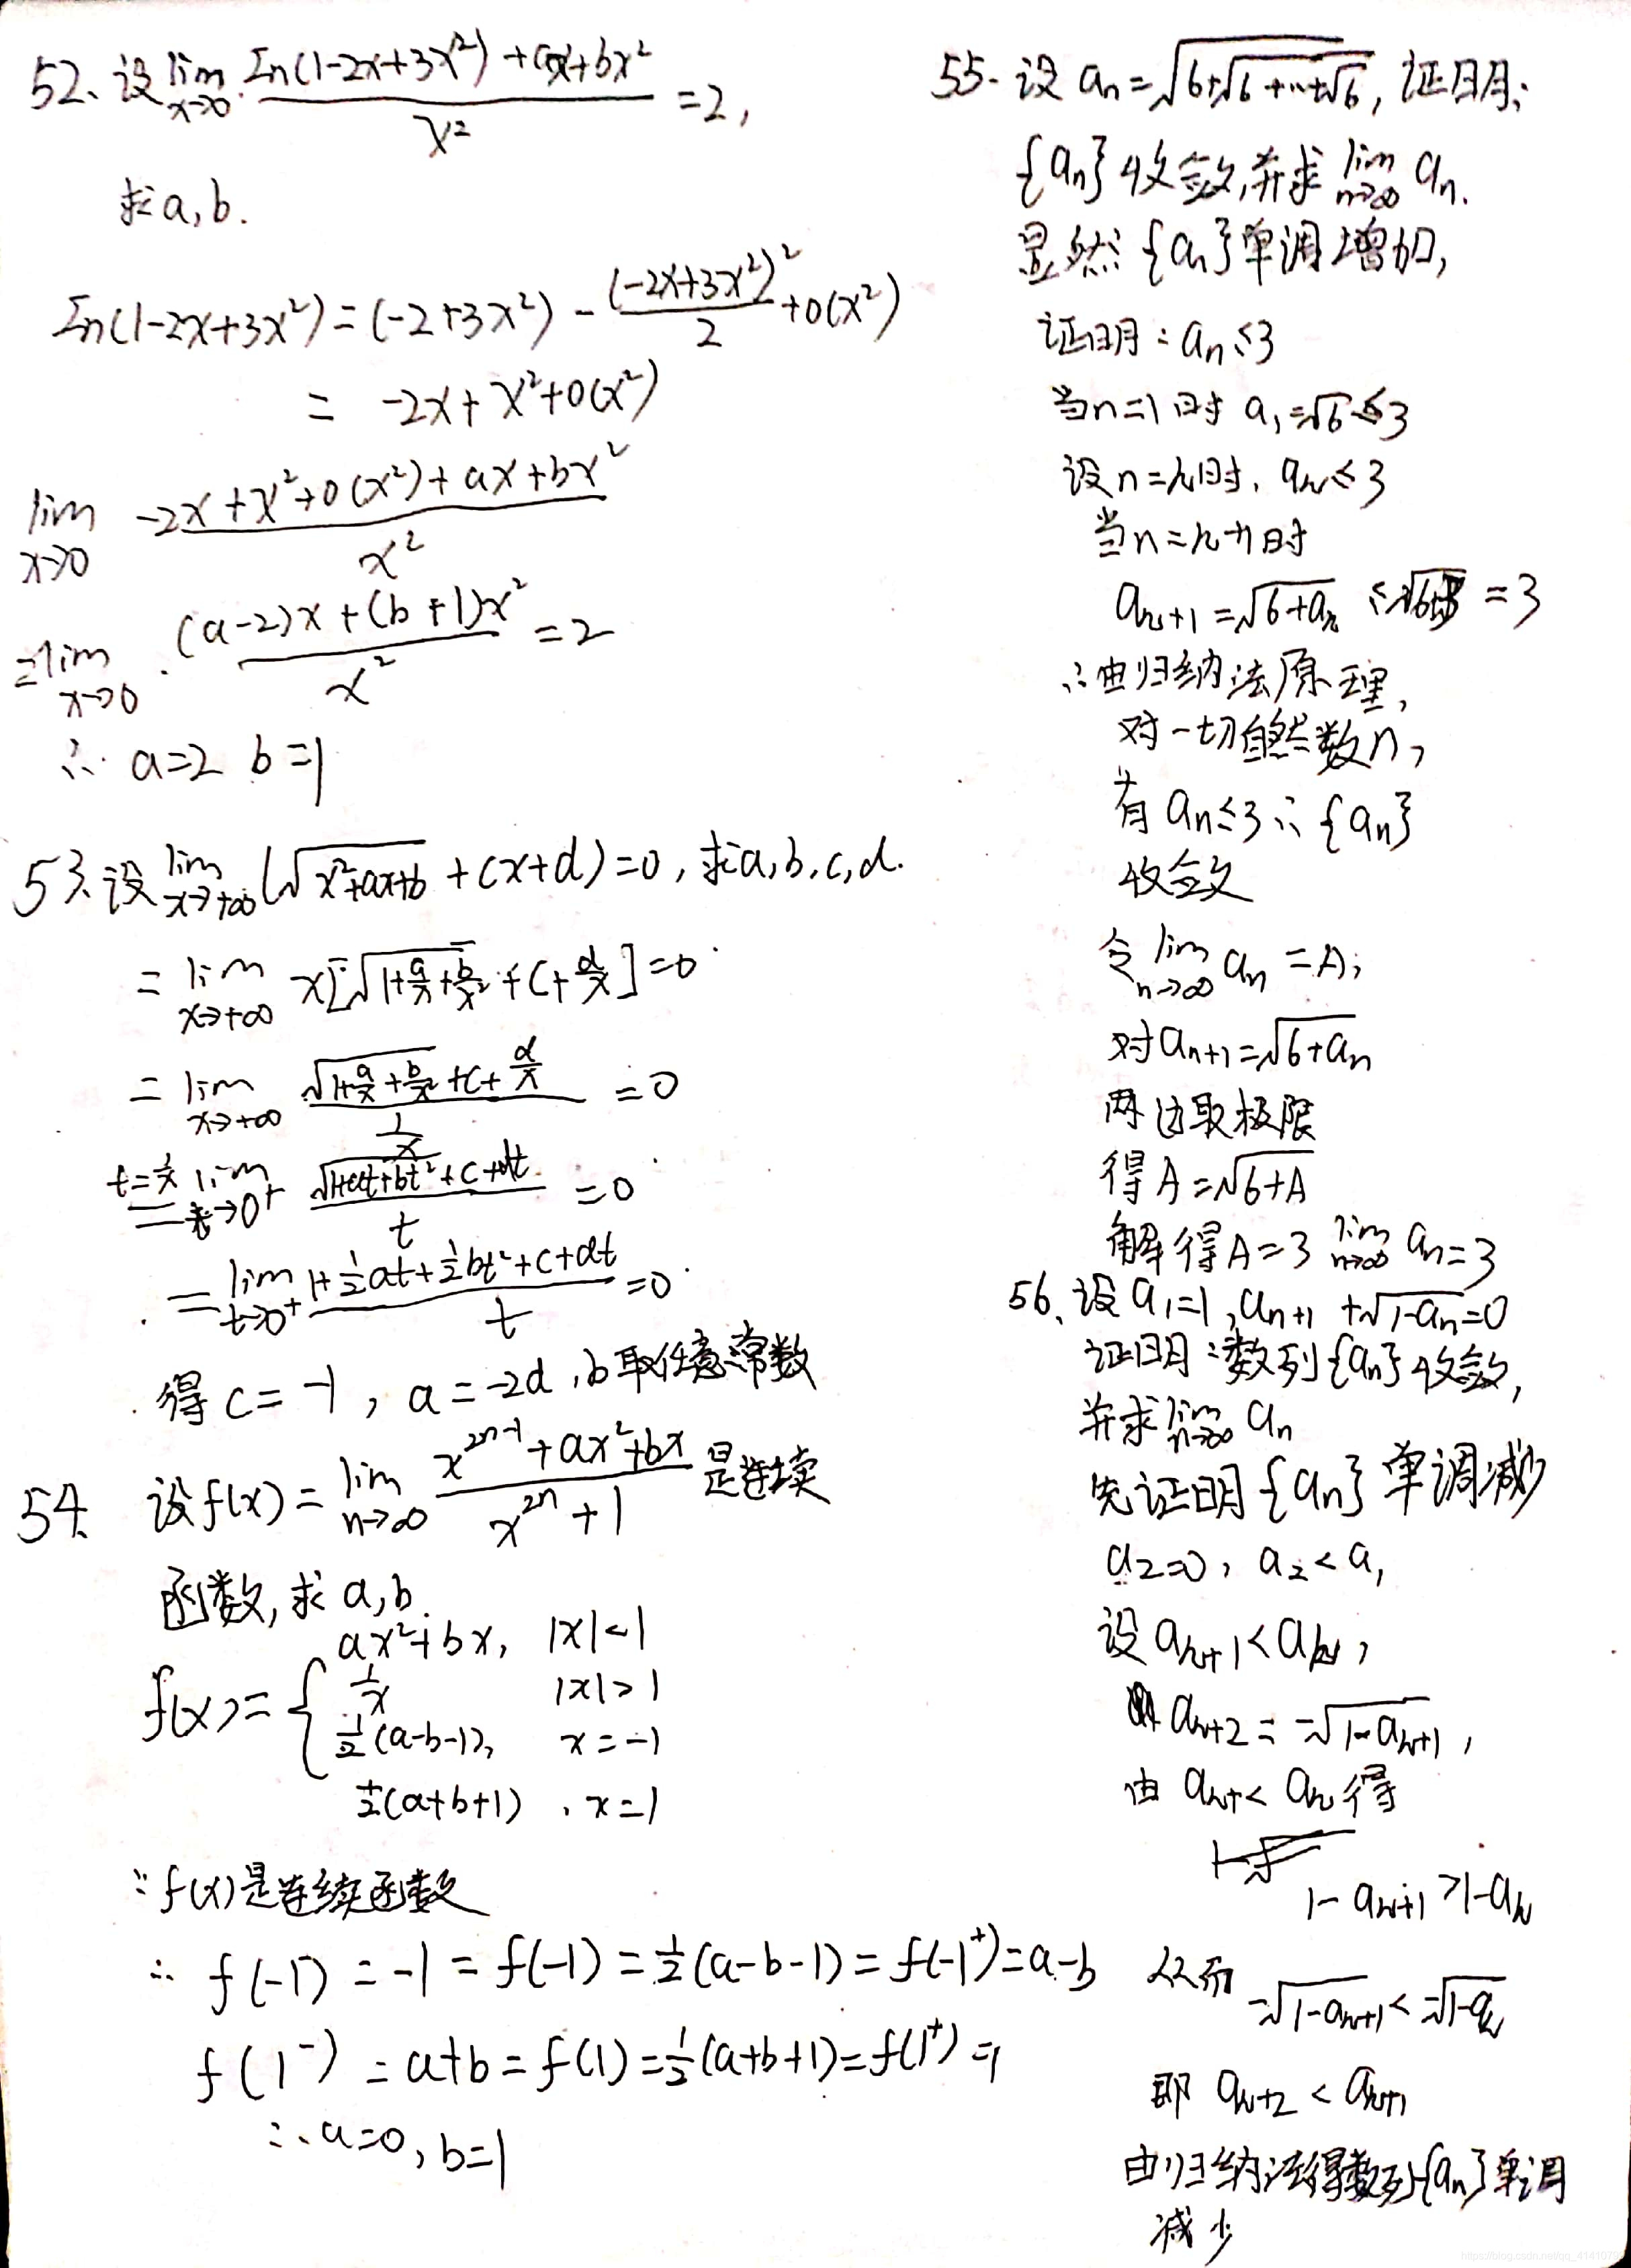 52、设 lim x→0 (ln(1-2x+3x²)+ax+bx²)/x² =2,
求a,b.
ln(1-2x+3x²)=(-2+3x²) - (-2x+3x²)²/2 +o(x²)
= -2x+x²+o(x²)
lim x→0 (-2x+x²+o(x²)+ax+bx²)/x²
=lim x→0 ((a-2)x+(b+1)x²)/x² =2
∴ a=2 b=1
53、设 lim x→+∞ (√(x²+ax+b) +cx+d)=0, 求a,b,c,d.
= lim x→+∞ x[√(1+a/x+b/x²) +c+d/x]=0
= lim x→+∞ (√(1+a/x+b/x²) +c+d/x)/(1/x) =0
t=1/x = lim t→0⁺ (√(1+at+bt²)+c+dt)/t =0
= lim t→0⁺ (1+½at+½bt²+c+dt)/t =0
得 c=-1, a=-2d, b取任意常数
54、设f(x)= lim n→∞ (x²ⁿ⁻¹+ax²+bx)/(x²ⁿ+1) 是连续
函数,求 a,b
ax²+bx, |x|<1
f(x)={ 1/x |x|>1
½(a-b-1), x=-1
½(a+b+1), x=1
∵f(x)是连续函数
∴ f(-1⁻) = -1 = f(-1) = ½(a-b-1) = f(-1⁺)=a-b
f(1⁻) = a+b = f(1) = ½(a+b+1)=f(1⁺)=1
∴a=0, b=1
55.设 aₙ=√(6+√(6+…+√6)), 证明:
{aₙ}收敛,并求 lim n→∞ aₙ.
显然{aₙ}单调增加,
证明:aₙ≤3
当n=1时 a₁=√6≤3
设n=k时, aₖ≤3
当n=k+1时
aₖ₊₁=√(6+aₖ) ≤√(6+3) =3
∴由归纳法原理,
对一切自然数n,
有 aₙ≤3∴{aₙ}
收敛
令 lim n→∞ aₙ =A,
对aₙ₊₁=√(6+aₙ)
两边取极限
得 A=√(6+A)
解得A=3 lim n→∞ aₙ=3
56、设 a₁=1, aₙ₊₁ +√(1-aₙ)=0
证明:数列{aₙ}收敛,
并求 lim n→∞ aₙ
先证明{aₙ}单调减少
a₂=0, a₂<a₁
设 aₖ₊₁<aₖ,
aₖ₊₂=-√(1-aₖ₊₁),
由 aₖ₊₁<aₖ得
1-aₖ₊₁>1-aₖ
从而 -√(1-aₖ₊₁)<-√(1-aₖ)
即 aₖ₊₂<aₖ₊₁
由归纳法得数列{aₙ}单调
减少